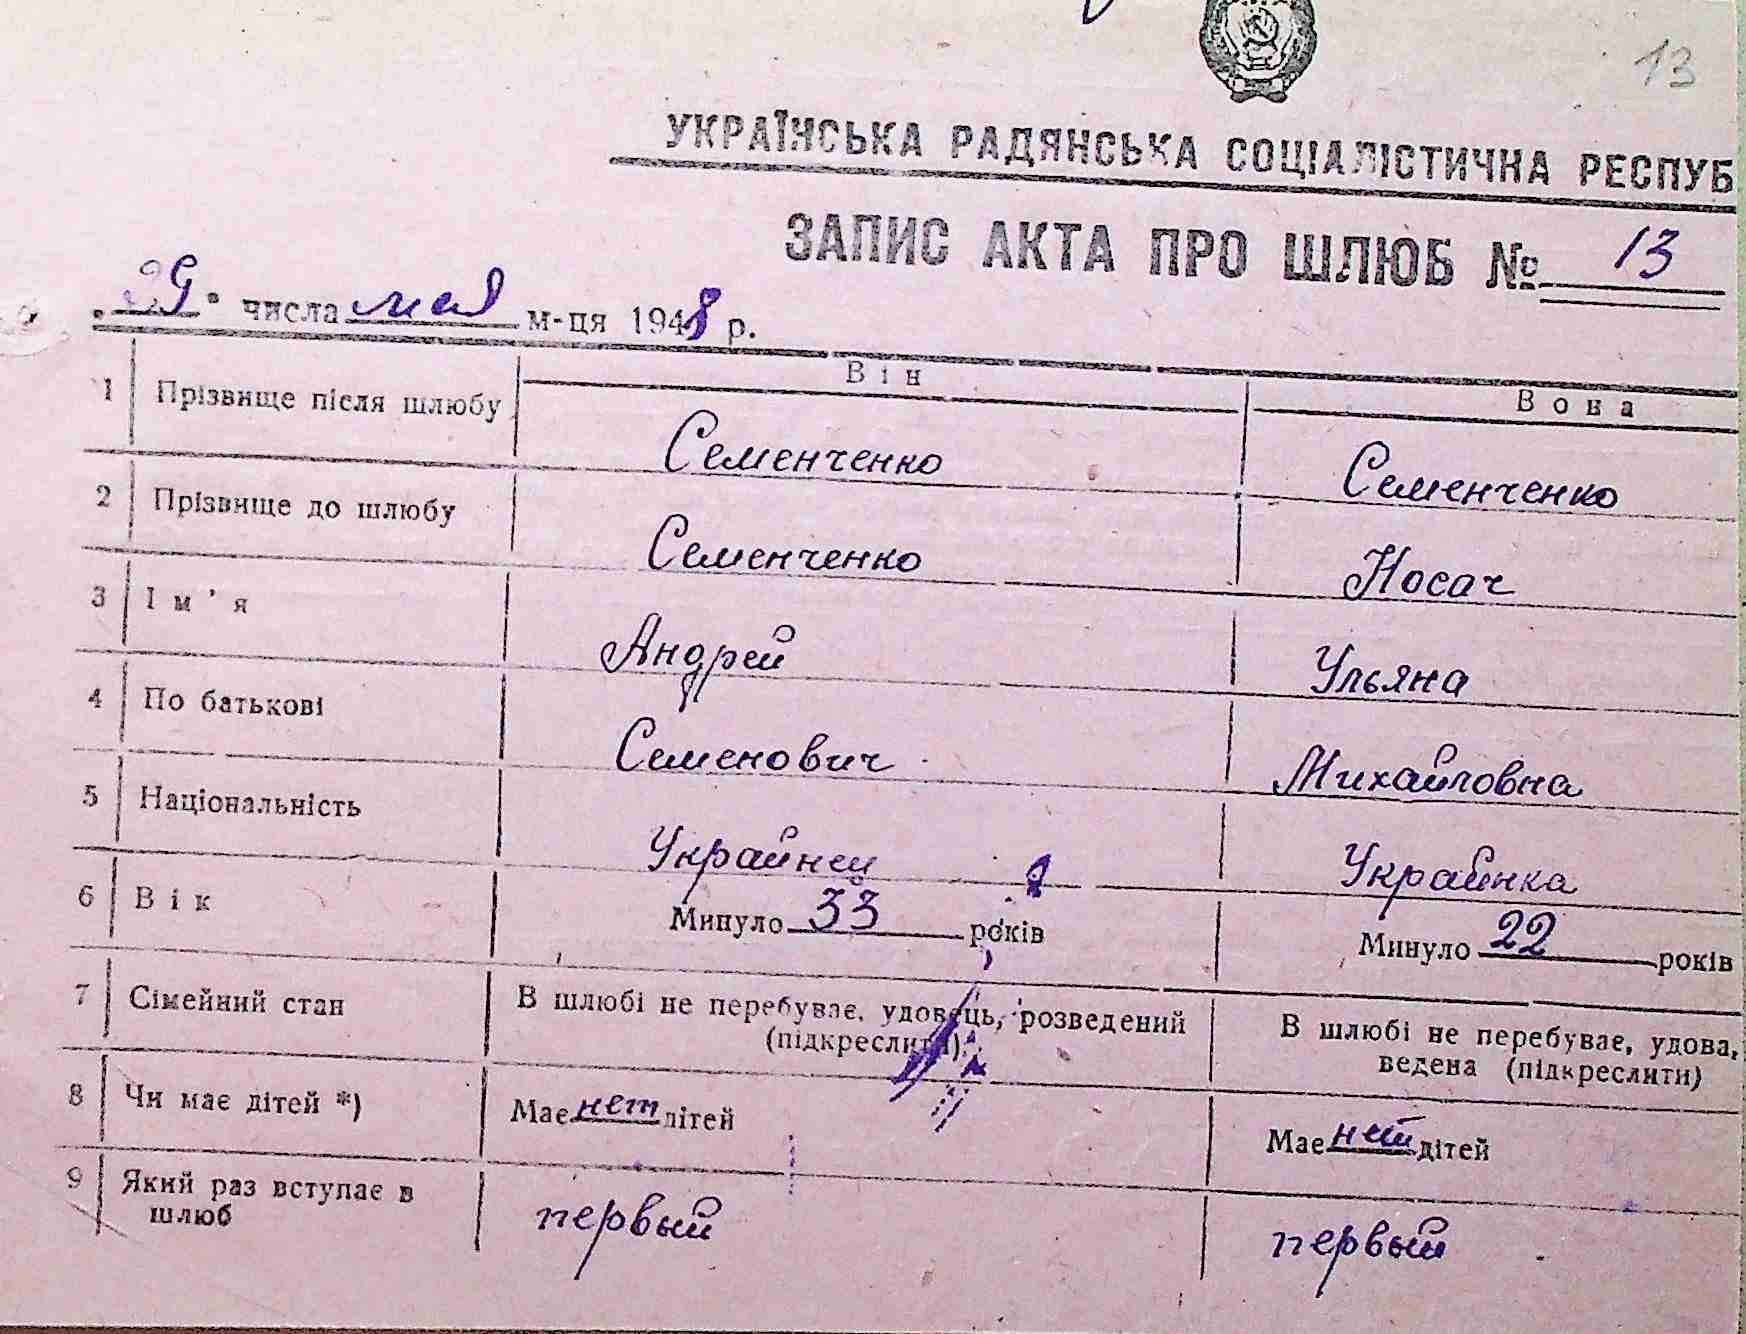 13
УКРАЇНСЬКА РАДЯНСЬКА СОЦІАЛІСТИЧНА РЕСПУБ
ЗАПИС АКТА ПРО ШЛЮБ № 13
„29“ числа мая м-ця 1948 р.
Він Вона
1 Прізвище після шлюбу Семенченко Семенченко
2 Прізвище до шлюбу Семенченко Носач
3 Ім'я Андрей Ульяна
4 По батькові Семенович Михайловна
5 Національність Украйнец Украйнка
6 Вік Минуло 33 років Минуло 22 років
7 Сімейний стан В шлюбі не перебуває, удовець, розведений В шлюбі не перебуває, удова,
(підкреслити) ведена (підкреслити)
8 Чи має дітей *) Має нет дітей Має нет дітей
9 Який раз вступає в первый первый
шлюб